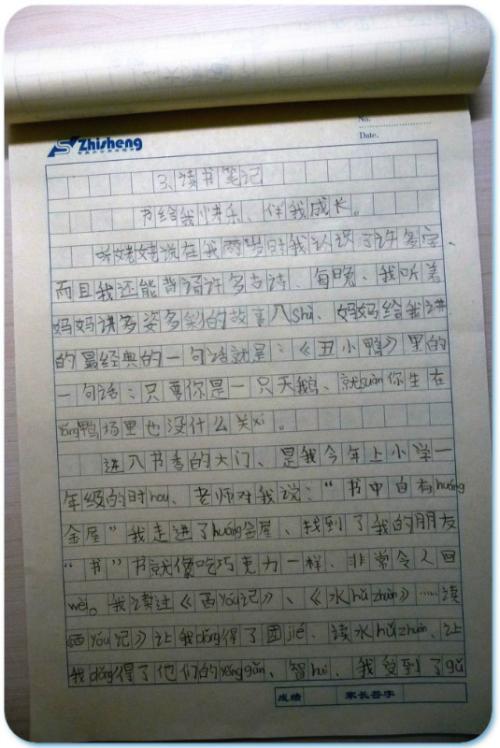 Zhisheng
No.
Date.
3.读书笔记
书给我快乐、伴我成长。
听姥姥说在我两岁时我认识了许多字、
而且我还能背诵许多古诗、每晚、我听着
妈妈讲多姿多彩的故事入shuì、妈妈给我讲
的最经典的一句话就是:《丑小鸭》里的
一句话:只要你是一只天鹅、就suàn你生在
yǎng鸭场里也没什么关xì。
进入书香的大门、是我今年上小学一
年级的时hou、老师对我说:“书中自有huáng
金屋”我走进了huáng金屋、找到了我的朋友
“书”书就像吃巧克力一样、非常令人回
wèi。我读过《西yóu记》、《水hǔ zhuàn》……读
《西yóu记》让我dǒng得了团jié、读水hǔ zhuàn、让
我dǒng得了他们的yǒng gǎn、智huì、我受到了gǔ
成绩 家长签字